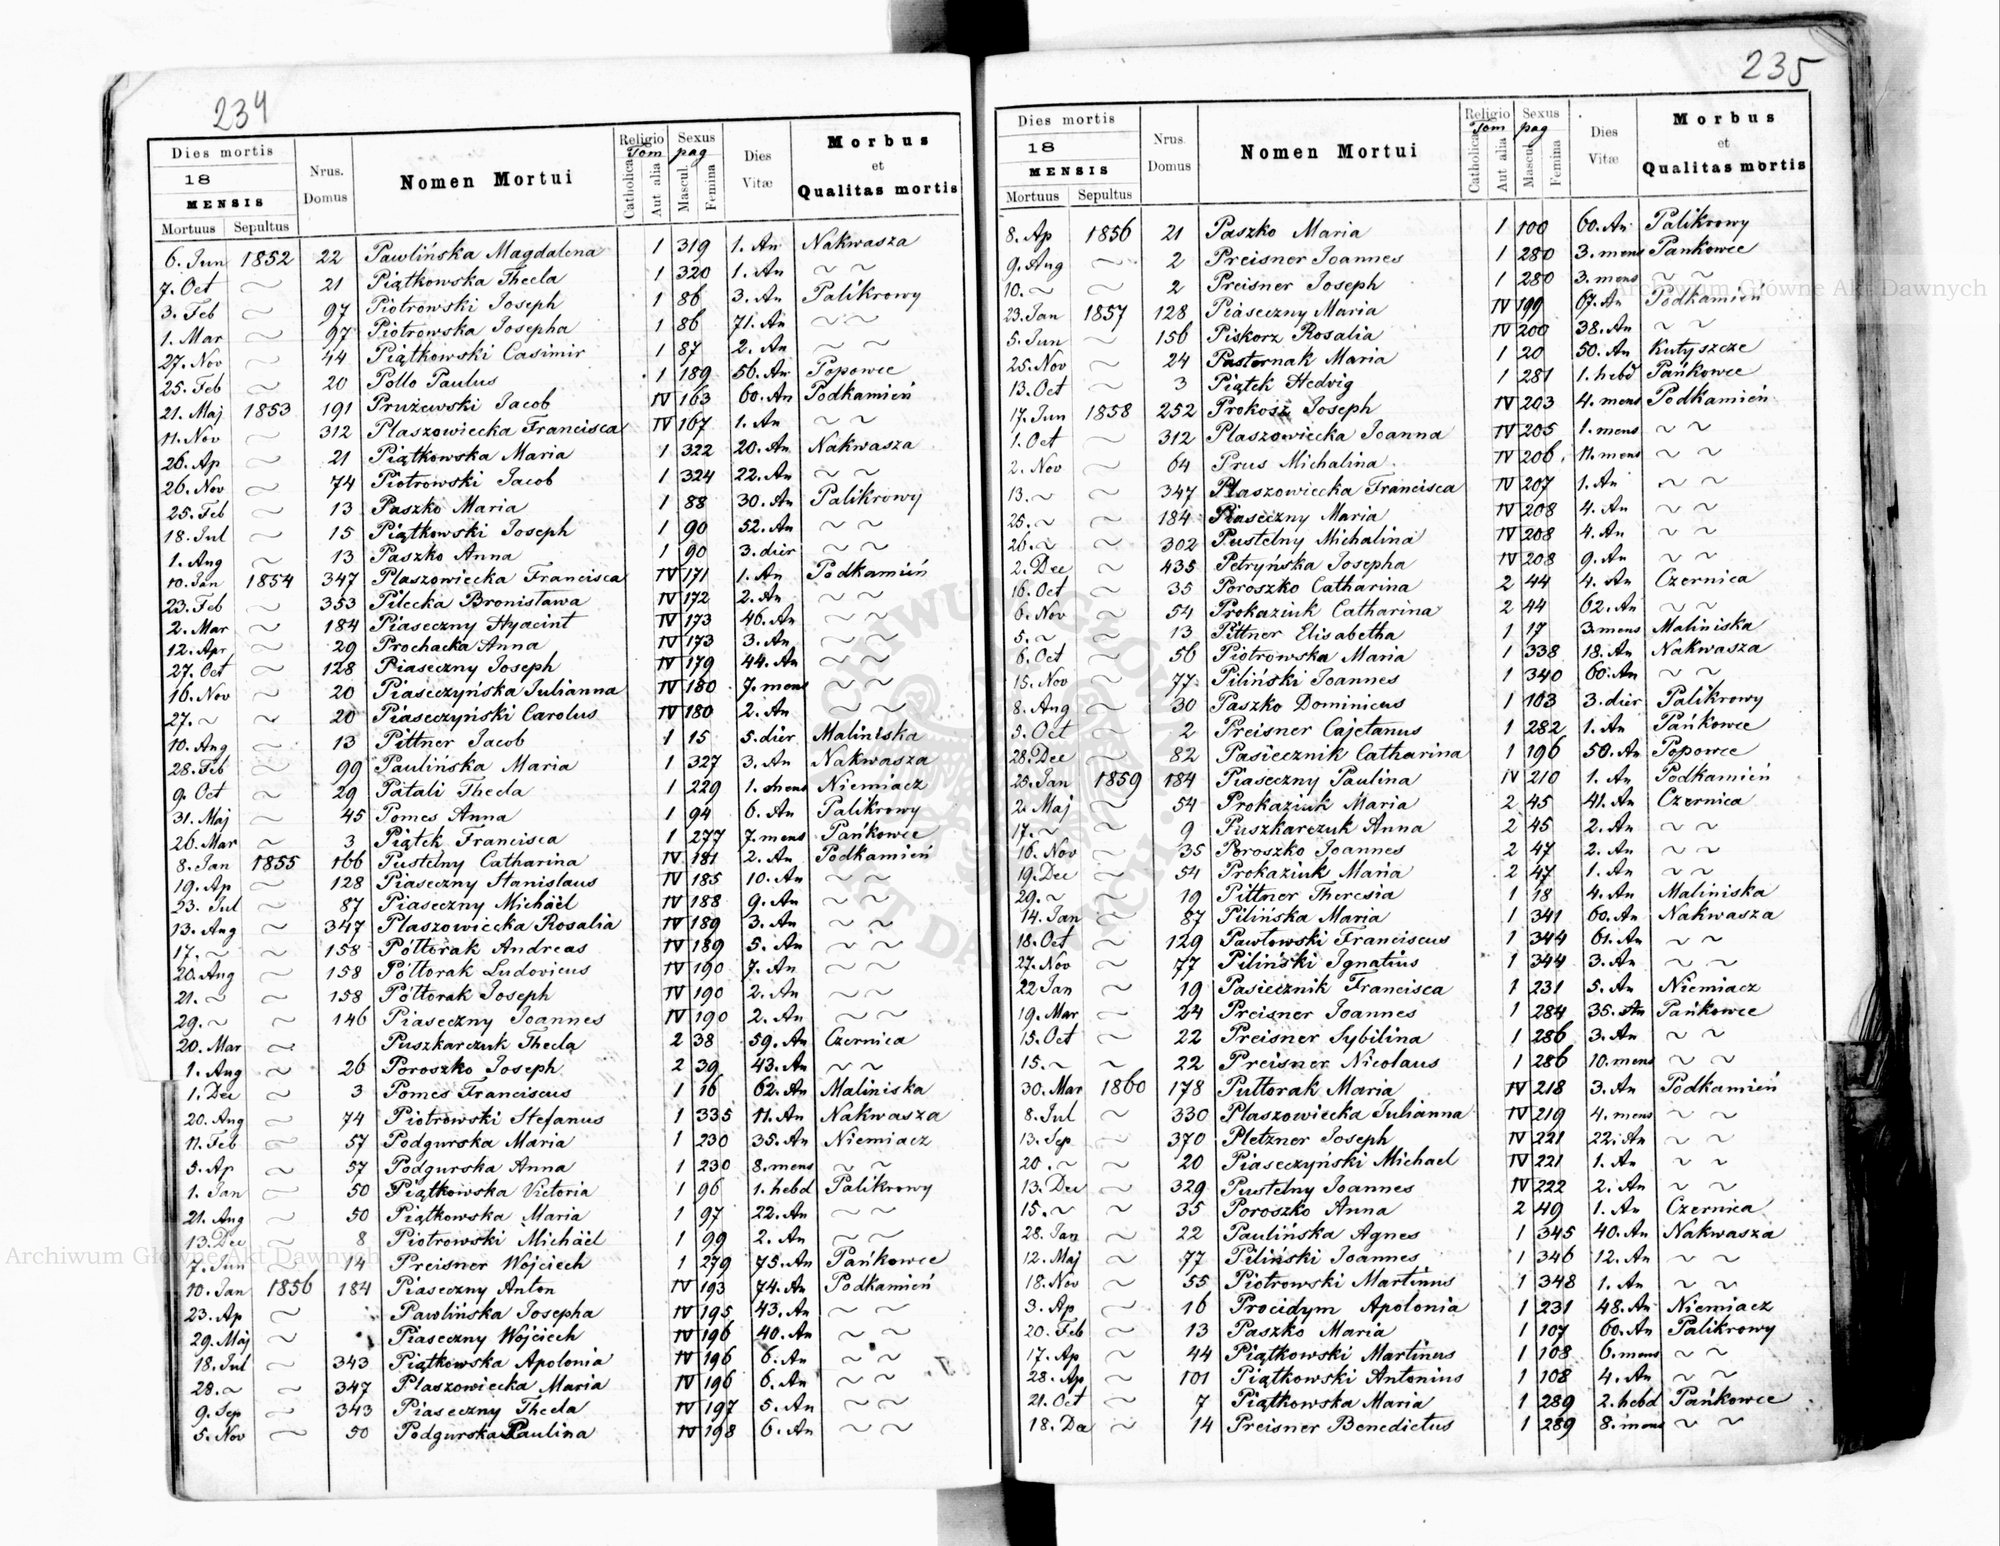 234
Dies mortis
18
MENSIS
Mortuus Sepultus
Nrus. Domus
Nomen Mortui
Religio
Tom
Catholica
Aut alia
Sexus
pag
Mascul.
Femina
Dies Vitæ
Morbus
et
Qualitas mortis
6. Jun 1852 22 Pawlińska Magdalena 1 319 1. An Nakwasza
7. Oct ~ 21 Piątkowska Thecla 1 320 1. An ~ ~
3. Feb ~ 97 Piotrowski Joseph 1 86 3. An Palikrowy
1. Mar ~ 97 Piotrowska Josepha 1 86 71. An ~ ~
27. Nov ~ 44 Piątkowski Casimir 1 87 2. An ~ ~
25. Feb ~ 20 Pollo Paulus 1 189 56. An Popowce
21. Maj 1853 191 Prużewski Jacob IV 163 60. An Podkamień
11. Nov ~ 312 Plaszowiecka Francisca IV 167 1. An ~ ~
26. Ap ~ 21 Piątkowska Maria 1 322 20. An Nakwasza
26. Nov ~ 74 Piotrowski Jacob 1 324 22. An ~ ~
25. Feb ~ 13 Paszko Maria 1 88 30. An Palikrowy
18. Jul ~ 15 Piątkowski Joseph 1 90 52. An ~ ~
1. Aug ~ 13 Paszko Anna 1 90 3. dier ~ ~
10. Jan 1854 347 Plaszowiecka Francisca IV 171 1. An Podkamień
23. Feb ~ 353 Pilecka Bronisława IV 172 2. An ~ ~
2. Mar ~ 184 Piaseczny Hyacint IV 173 46. An ~ ~
12. Apr ~ 29 Prochacka Anna IV 173 3. An ~ ~
27. Oct ~ 128 Piaseczny Joseph IV 179 44. An ~ ~
16. Nov ~ 20 Piaseczyńska Julianna IV 180 7. mens ~ ~
27. ~ ~ 20 Piaseczyński Carolus IV 180 2. An ~ ~
10. Aug ~ 13 Pittner Jacob 1 15 5. dier Maliniska
28. Feb ~ 99 Paulińska Maria 1 327 3. An Nakwasza
9. Oct ~ 29 Patali Thecla 1 229 1. mens Niemiacz
31. Maj ~ 45 Pomes Anna 1 94 6. An Palikrowy
26. Mar ~ 3 Piątek Francisca 1 277 7. mens Pańkowce
8. Jan 1855 166 Pustelny Catharina IV 181 2. An Podkamień
19. Ap ~ 128 Piaseczny Stanislaus IV 185 10. An ~ ~
23. Jul ~ 87 Piaseczny Michäel IV 188 9. An ~ ~
13. Aug ~ 347 Plaszowiecka Rosalia IV 189 3. An ~ ~
17. ~ ~ 158 Półtorak Andreas IV 189 5. An ~ ~
20. Aug ~ 158 Półtorak Ludovicus IV 190 7. An ~ ~
21. ~ ~ 158 Półtorak Joseph IV 190 2. An ~ ~
29. ~ ~ 146 Piaseczny Joannes IV 190 2. An ~ ~
20. Mar ~ Puszkarczuk Thecla 2 38 59. An Czernica
1. Aug ~ 26 Poroszko Joseph 2 39 43. An ~ ~
1. Dec ~ 3 Pomes Franciscus 1 16 62. An Maliniska
20. Aug ~ 74 Piotrowski Stefanus 1 335 11. An Nakwasza
11. Feb ~ 57 Podgurska Maria 1 230 35. An Niemiacz
5. Ap ~ 57 Podgurska Anna 1 230 8. mens ~ ~
1. Jan ~ 50 Piątkowska Victoria 1 96 1. hebd Palikrowy
21. Aug ~ 50 Piątkowska Maria 1 97 22. An ~ ~
13. Dec ~ 8 Piotrowski Michäel 1 99 2. An ~ ~
7. Jun ~ 14 Preisner Wojciech 1 279 75. An Pańkowce
10. Jan 1856 184 Piaseczny Anton IV 193 74. An Podkamień
23. Ap ~ Pawlińska Josepha IV 195 43. An ~ ~
29. Maj ~ Piaseczny Wojciech IV 196 40. An ~ ~
18. Jul ~ 343 Piątkowska Apolonia IV 196 6. An ~ ~
28. ~ ~ 347 Plaszowiecka Maria IV 196 6. An ~ ~
9. Sep ~ 343 Piaseczny Thecla IV 197 5. An ~ ~
5. Nov ~ 50 Podgurska Paulina IV 198 6. An ~ ~
235
Dies mortis
18
MENSIS
Mortuus Sepultus
Nrus. Domus
Nomen Mortui
Religio
Tom
Catholica
Aut alia
Sexus
pag
Mascul.
Femina
Dies Vitæ
Morbus
et
Qualitas mortis
8. Ap 1856 21 Paszko Maria 1 100 60. An Palikrowy
9. Aug ~ 2 Preisner Joannes 1 280 3. mens Pankowce
10. ~ ~ 2 Preisner Joseph 1 280 3. mens ~ ~
23. Jan 1857 128 Piaseczny Maria IV 199 67. An Podkamień
5. Jun ~ 156 Piskorz Rosalia IV 200 38. An ~ ~
25. Nov ~ 24 Pasternak Maria 1 20 50. An Kutyszcze
13. Oct ~ 3 Piątek Hedvig 1 281 1. hebd Pańkowce
17. Jun 1858 252 Prokosz Joseph IV 203 4. mens Podkamień
1. Oct ~ 312 Plaszowiecka Joanna IV 205 1. mens ~ ~
2. Nov ~ 64 Prus Michalina IV 206. 11. mens ~ ~
13. ~ ~ 347 Plaszowiecka Francisca IV 207 1. An ~ ~
25. ~ ~ 184 Piaseczny Maria IV 208 4. An ~ ~
26. ~ ~ 302 Pustelny Michalina IV 208 4. An ~ ~
2. Dec ~ 435 Petryńska Josepha IV 208 9. An ~ ~
16. Oct ~ 35 Poroszko Catharina 2 44 4. An Czernica
6. Nov ~ 54 Prokaziuk Catharina 2 44 62. An ~ ~
5. ~ ~ 13 Pittner Elisabetha 1 17 3. mens Maliniska
6. Oct ~ 56 Piotrowska Maria 1 338 18. An Nakwasza
15. Nov ~ 77 Piliński Joannes 1 340 60. An ~ ~
8. Aug ~ 30 Paszko Dominicus 1 103 3. dier Palikrowy
5. Oct ~ 2 Preisner Cajetanus 1 282 1. An Pańkowce
28. Dec ~ 82 Pasiecznik Catharina 1 196 50. An Popowce
25. Jan 1859 184 Piaseczny Paulina IV 210 1. An Podkamień
2. Maj ~ 54 Prokaziuk Maria 2 45 41. An Czernica
17. ~ ~ 9 Puszkarczuk Anna 2 45 2. An ~ ~
16. Nov ~ 35 Poroszko Joannes 2 47 2. An ~ ~
19. Dec ~ 54 Prokaziuk Maria 2 47 1. An ~ ~
29. ~ ~ 19 Pittner Theresia 1 18 4. An Maliniska
14. Jan ~ 87 Pilińska Maria 1 341 60. An Nakwasza
18. Oct ~ 129 Pawłowski Franciscus 1 344 61. An ~ ~
27. Nov ~ 77 Piliński Ignatius 1 344 3. An ~ ~
22 Jan ~ 19 Pasiecznik Francisca 1 231 5. An Niemiacz
19. Mar ~ 24 Preisner Joannes 1 284 35. An Pańkowce
15. Oct ~ 22 Preisner Sybilina 1 286 3. An ~ ~
15. ~ ~ 22 Preisner Nicolaus 1 286 10. mens ~ ~
30. Mar 1860 178 Pułtorak Maria IV 218 3. An Podkamień
8. Jul ~ 330 Plaszowiecka Julianna IV 219 4. mens ~ ~
13. Sep ~ 370 Pletzner Joseph IV 221 22. An ~ ~
20. ~ ~ 20 Piaseczyński Michael IV 221 1. An ~ ~
13. Dec ~ 329 Pustelny Joannes IV 222 2. An ~ ~
15. ~ ~ 35 Poroszko Anna 2 49 1. An Czernica
28. Jan ~ 22 Paulińska Agnes 1 345 40. An Nakwasza
12. Maj ~ 77 Piliński Joannes 1 346 12. An ~ ~
18. Nov ~ 55 Piotrowski Martinus 1 348 1. An ~ ~
3. Ap ~ 16 Procidym Apolonia 1 231 48. An Niemiacz
20. Feb ~ 13 Paszko Maria 1 107 60. An Palikrowy
17. Ap ~ 44 Piątkowski Martinus 1 108 6. mens ~ ~
28. Ap ~ 101 Piątkowski Antonius 1 108 4. An ~ ~
21. Oct ~ 7 Piątkowska Maria 1 289 2. hebd Pańkowce
18. De ~ 14 Preisner Benedictus 1 289 8. mens ~ ~
Archiwum Główne Akt Dawnych
Archiwum Główne Akt Dawnych